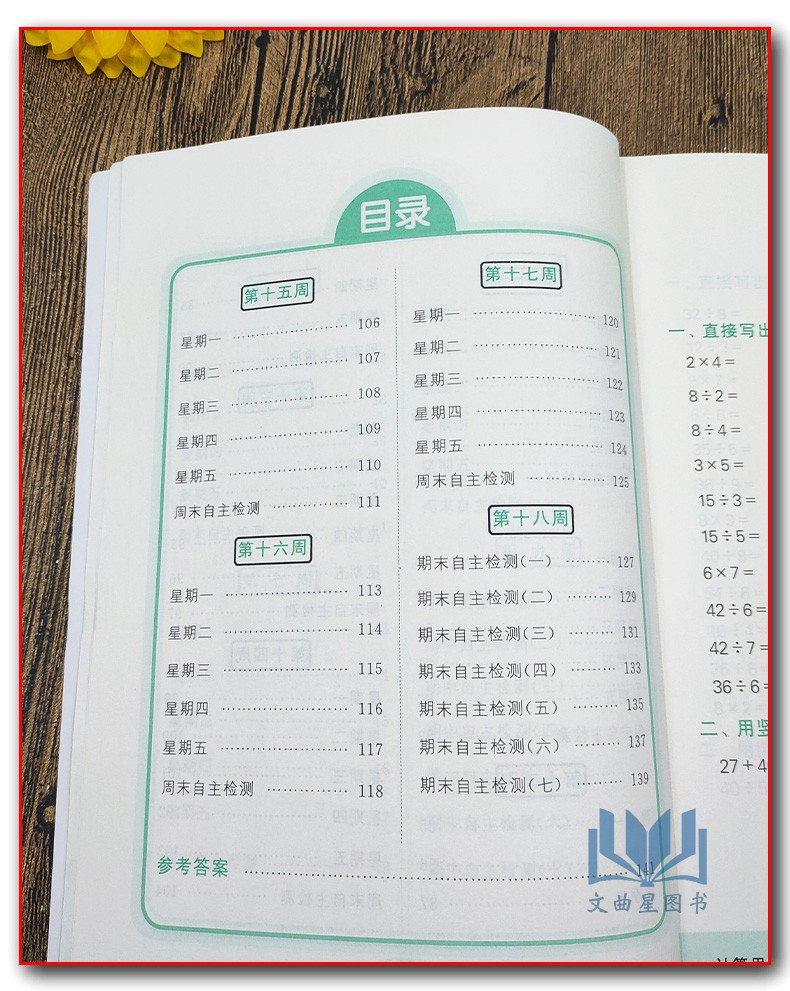 目录
第十五周
星期一 ………………… 106
星期二 ………………… 107
星期三 ………………… 108
星期四 ………………… 109
星期五 ………………… 110
周末自主检测 …………… 111
第十六周
星期一 ………………… 113
星期二 ………………… 114
星期三 ………………… 115
星期四 ………………… 116
星期五 ………………… 117
周末自主检测 …………… 118
第十七周
星期一 ………………… 120
星期二 ………………… 121
星期三 ………………… 122
星期四 ………………… 123
星期五 ………………… 124
周末自主检测 …………… 125
第十八周
期末自主检测(一) ……… 127
期末自主检测(二) ……… 129
期末自主检测(三) ……… 131
期末自主检测(四) ……… 133
期末自主检测(五) ……… 135
期末自主检测(六) ……… 137
期末自主检测(七) ……… 139
参考答案 ……………………………………… 141
一、直接写出
2×4=
8÷2=
8÷4=
3×5=
15÷3=
15÷5=
6×7=
42÷6=
42÷7=
36÷6=
二、用竖
27+4
文曲星图书